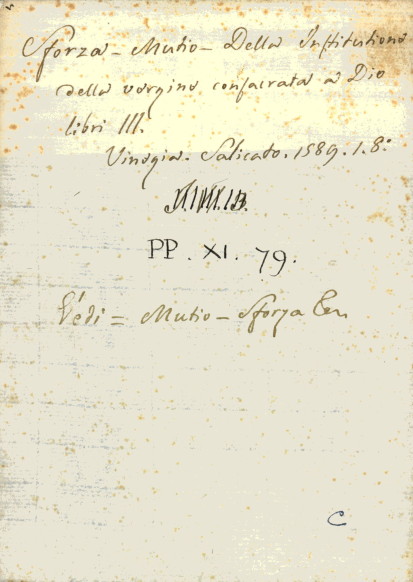 Sforza - Mutio - Della Institutione
della vergine consacrata a Dio
libri III.
Vinegia. Salicato. 1589. 1. 8.
PP. XI. 79.
Vedi = Mutio - Sforza
C